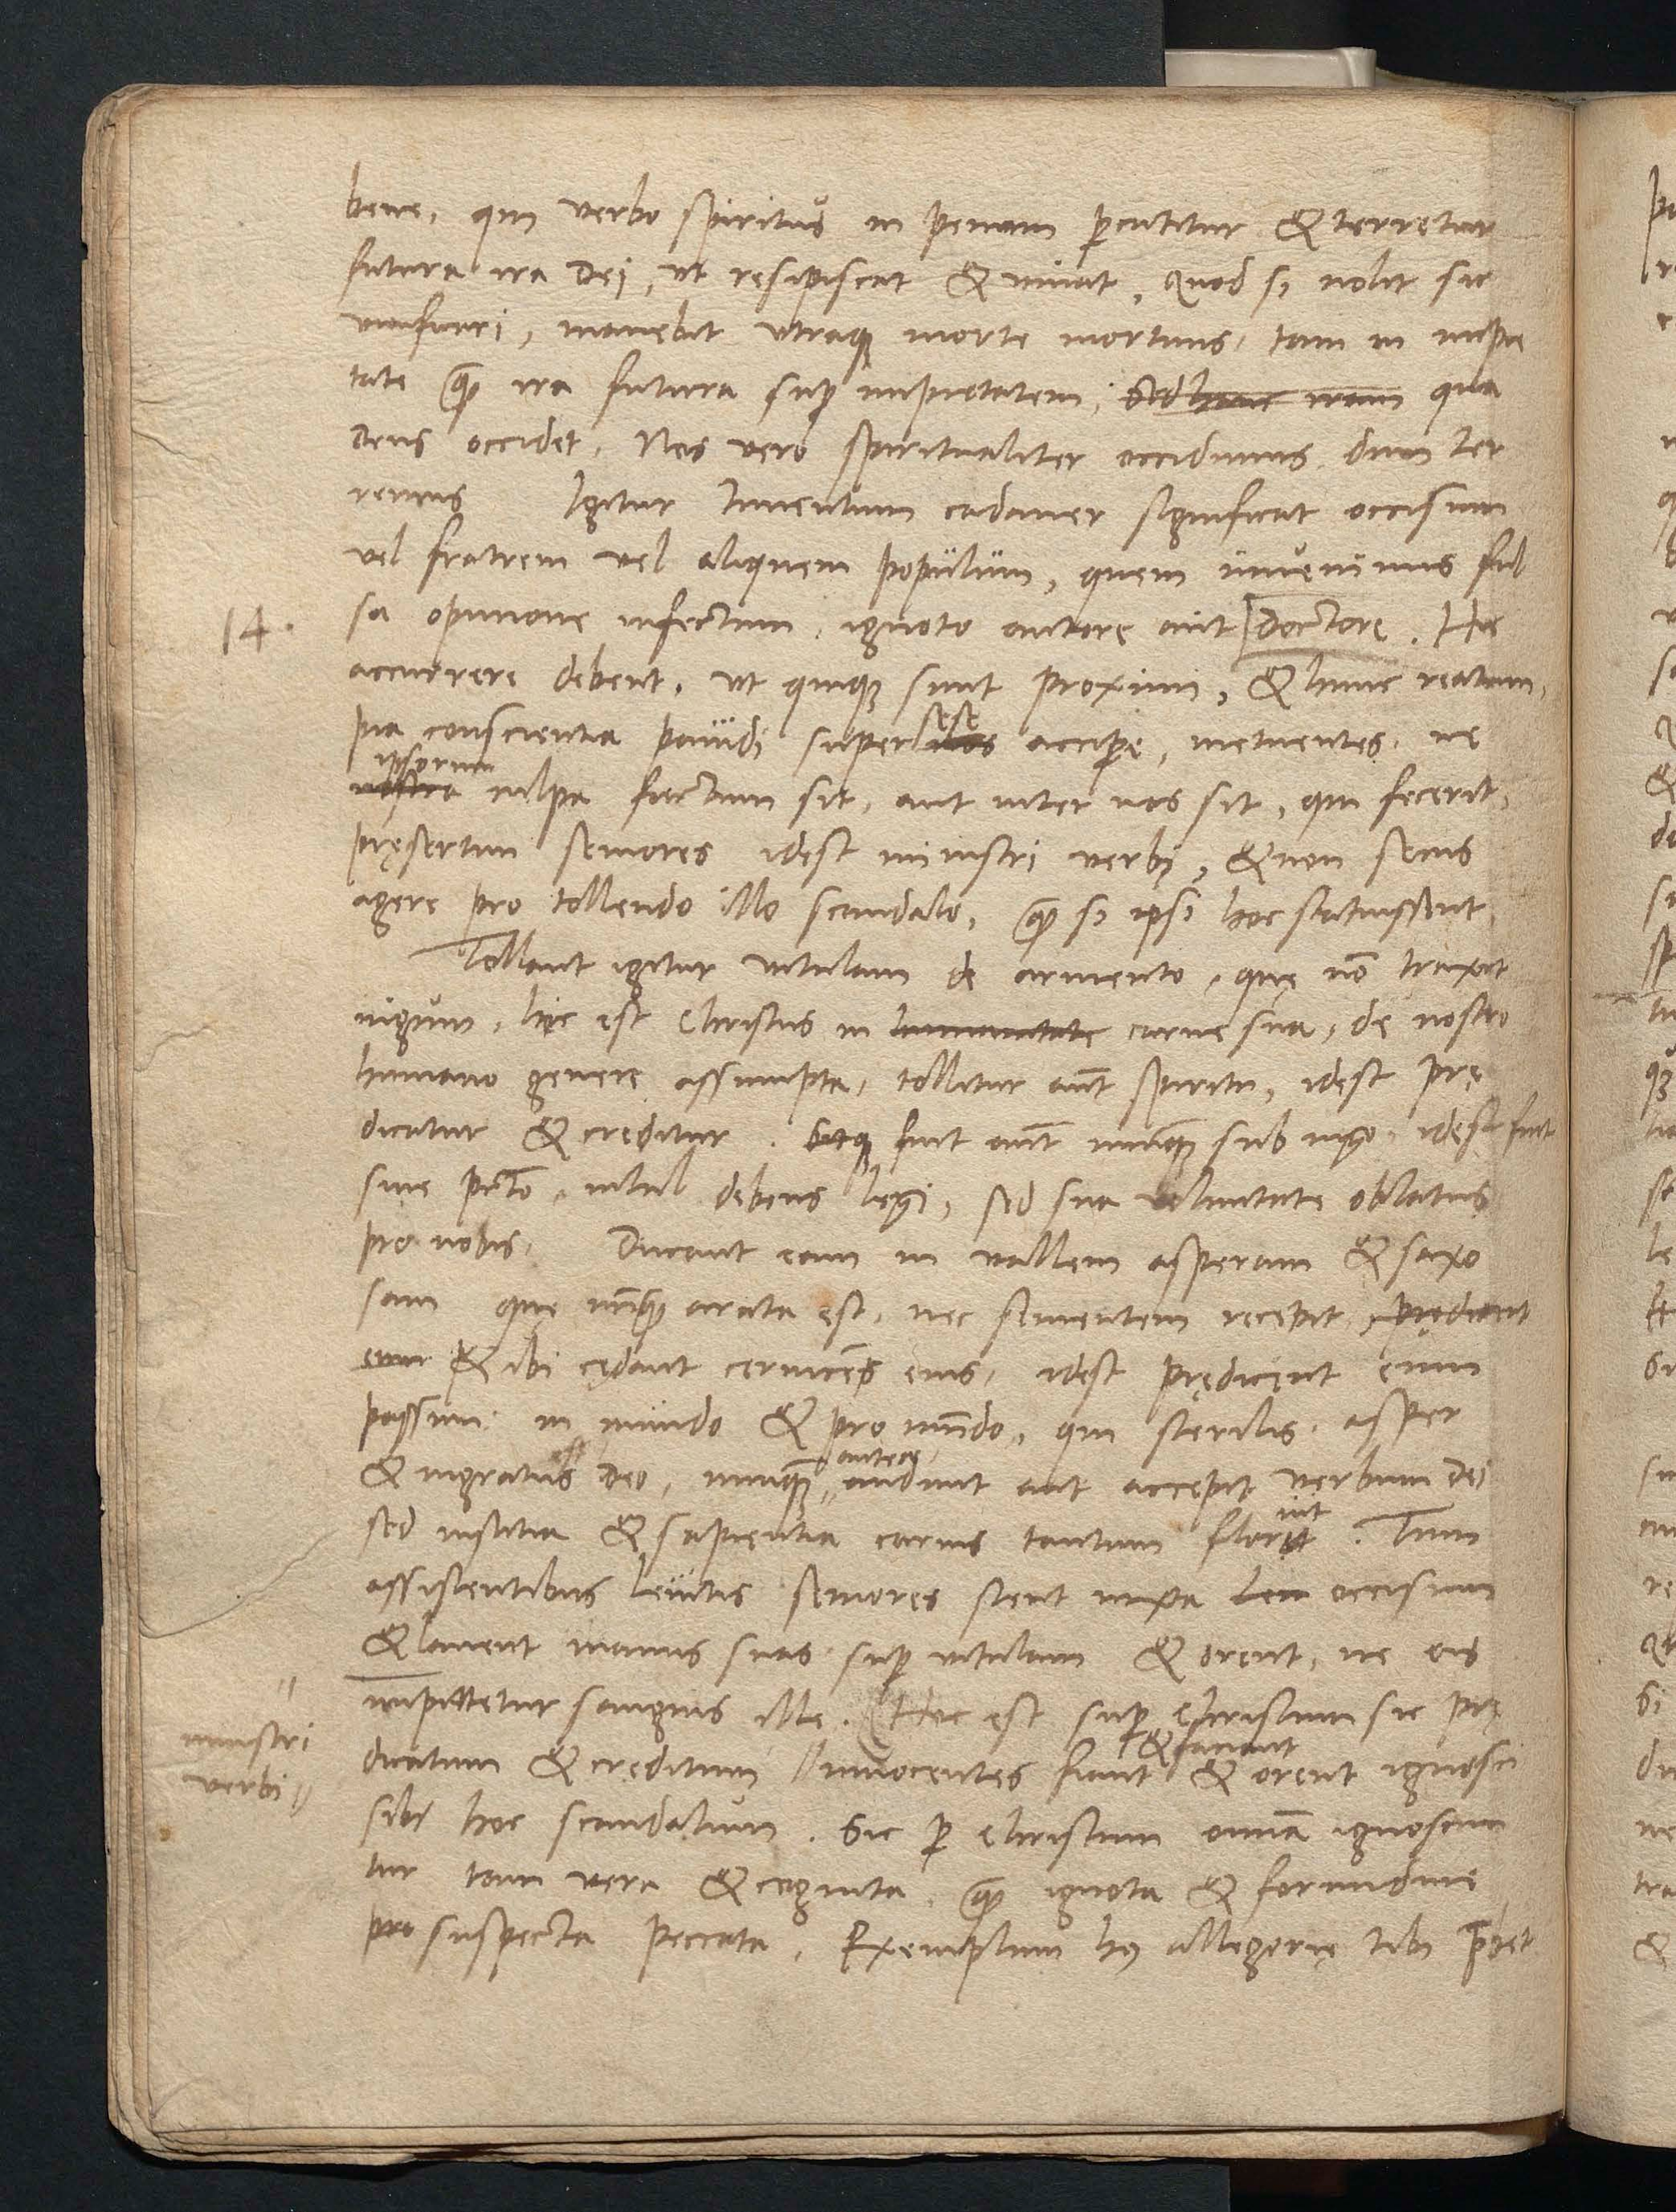 bene, qm verbo spiritus in penam percutitur & terretur
futura ira Dei, ut resipiscat & vivat, Quod si nolit sic
manebit utraque morte mortuus, tam in impie
tate quam ira futura super impietatem, sed hanc iram qua
deus occidet, Nos vero spiritualiter occidimus dum ter
remus Igitur Inventum cadaver significat occisum
vel fratrem vel aliquem populum, quem invenimus fal
14.
sa opinione infectum, ignoto autore aut Doctore. Hic
accurrere debent, ut quique sunt proximi, & hunc reatum,
sese
pia conscientia pavidi super nos accipere, metuentes, ne
ipsorum
nostra culpa factum sit, aut inter nos sit, qui fecerit,
pręsertim seniores idest ministri verbi, & non secus
agere pro tollendo illo scandalo, quam si ipsi hoc statuissent
Tollant igitur vitulam de armento, quę no traxit
iugum, hic est Christus in humanitate carne sua, de nostro
humano genere assumpta, tollitur aut spiritu, idest prę
dicatur & creditur. fuit aut nunquam sub iugo, idest fuit
sine pcto, nihil debens legi, sed sua voluntate oblatus
pro nobis, Ducant eam in vallem asperam & saxo
sam quę nunquam arata est, nec sementem recepit, prędicent
eum & ibi cędant cervices eius, idest prędicent eum
passum in mundo & pro mundo, qui sterilis, asper
antea
& ingratus Deo, nunquam audivit aut accepit verbum Dei
int
sed iustitia & sapientia carnis tantum florut. Tum
assistentibus Levitis seniores stent iuxta occisum
& lavent manus suas super vitulam & orent, ne eis
imputetur sanguis ille. Hoc est super Christum sic prę
ministri
verbi
& faciant
dicatum & creditum innocentes fiunt & orent ignosci
sibi hoc scandalum. Sic per Christum omnia ignoscun
tur tam vera & cognita, quam ignota & formidine
pro suspecta peccata, Exemplum huius allegorię tibi prebet